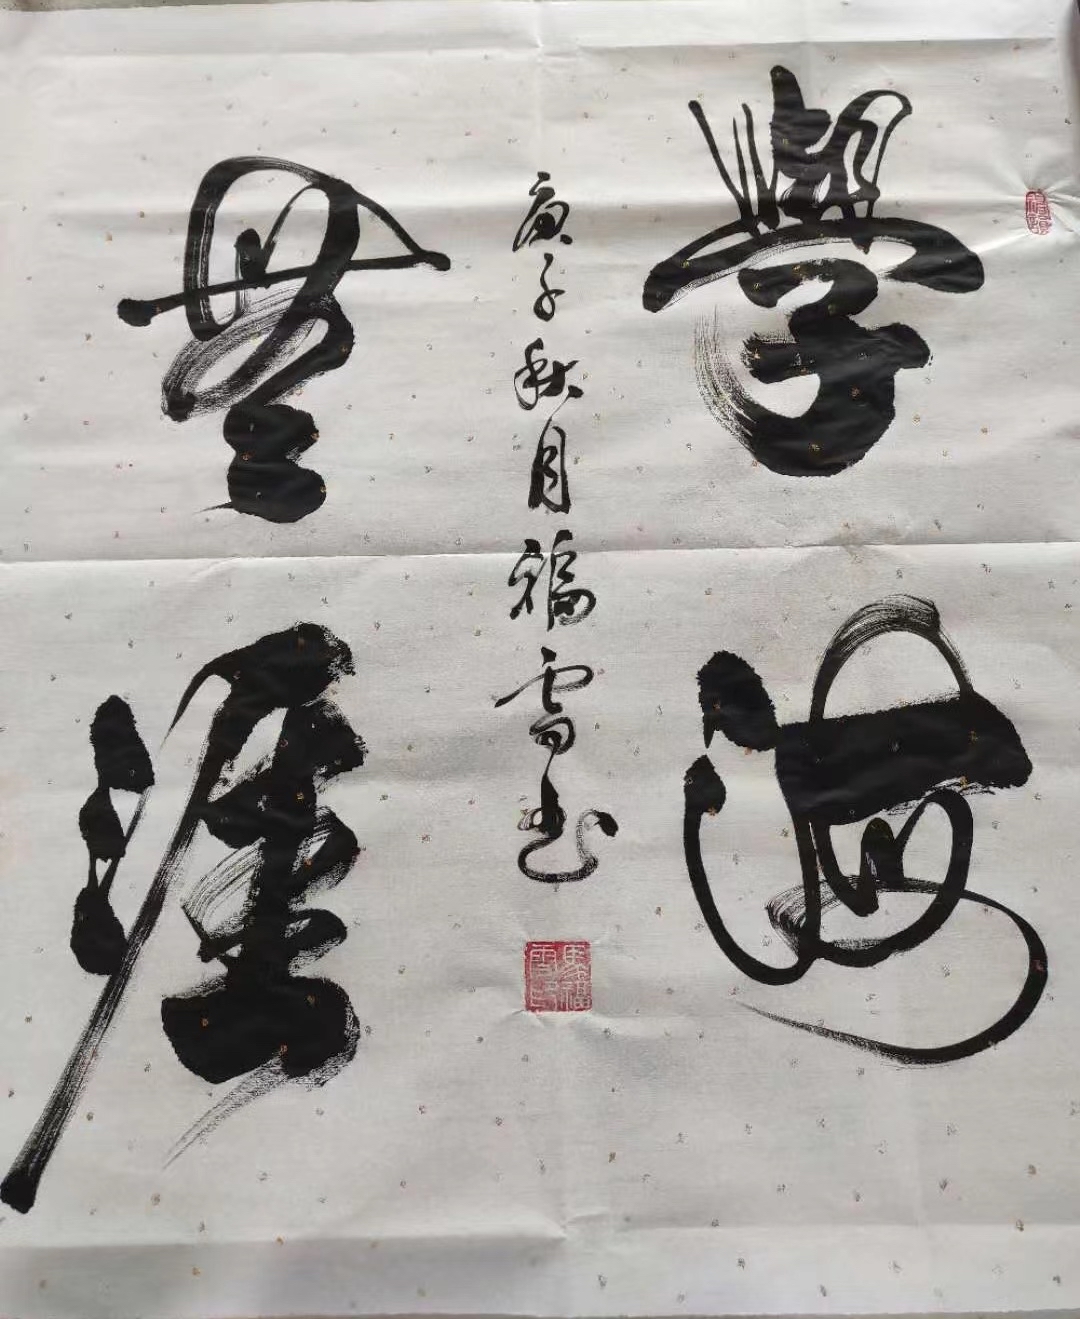 學海
無涯
庚子秋月福雪书
馬福雪印